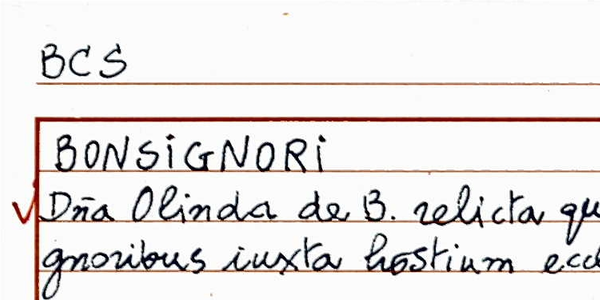 BCS
BONSiGNORi
Dña Olinda de B. relicta
gnoribus iuxta hostium